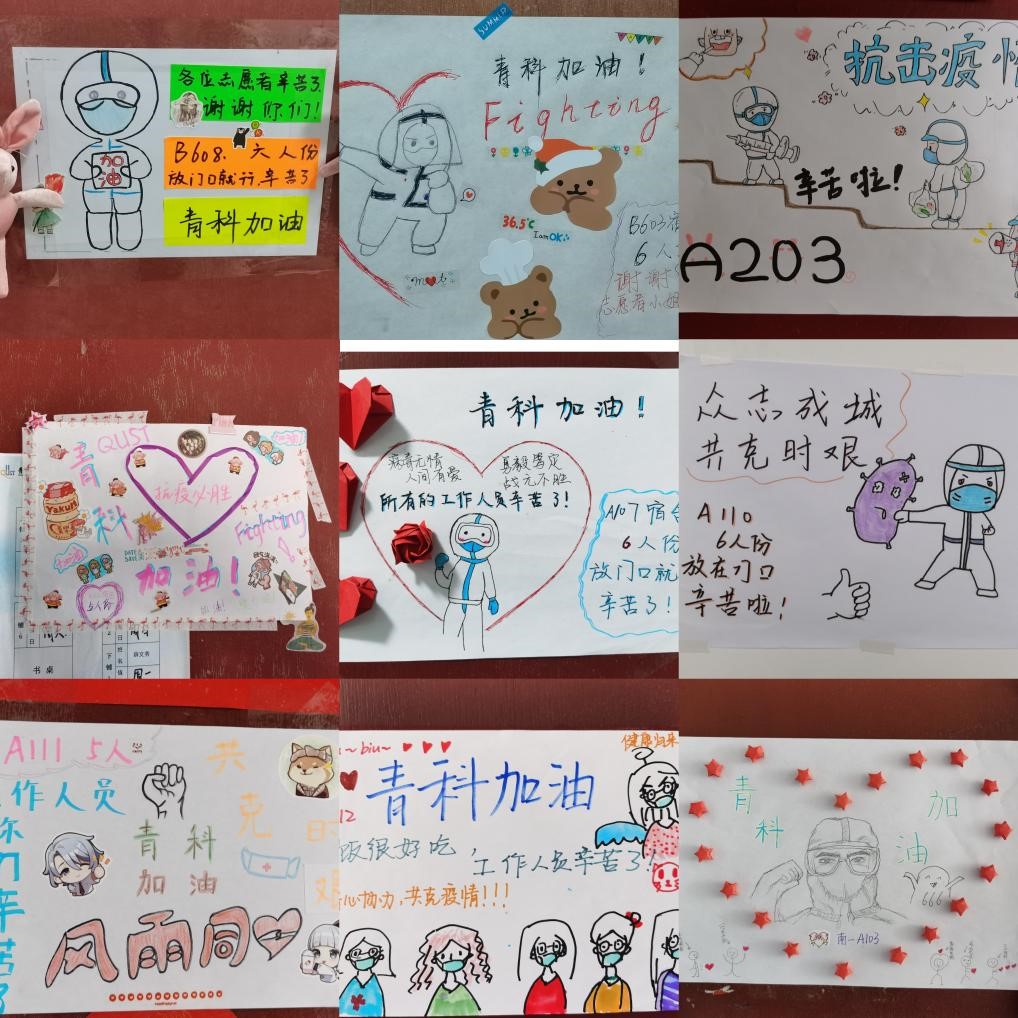 各位志愿者辛苦了
谢谢你们!
B608. 六人份
放门口就行,辛苦了
青科加油
加油
SUMMER
青科加油!
Fighting
36.5℃
I am OK
B603宿
6人
谢谢
志愿者小姐
抗击疫情
辛苦啦!
A203
QUST
青科
加油!
抗疫必胜
Fighting
Yakult
5人份
加油!
书桌
周一
青科加油!
病毒无情
人间有爱
坚毅笃定
战无不胜
所有的工作人员辛苦了!
A107宿舍
6人份
放门口就
辛苦了!
众志成城
共克时艰
A110
6人份
放在门口
辛苦啦!
A111 5人
工作人员
你们辛苦了
共克时艰
青科
加油
风雨同
~biu~
健康归来
青科加油
12
饭很好吃,
工作人员辛苦了!
心协力,共克疫情!!!
青科
加油
666
南一A103